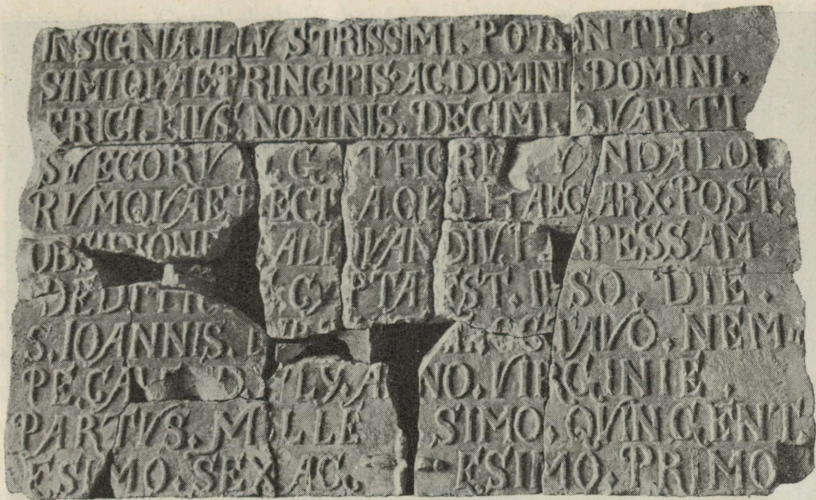 INSIGNIA. ILLVSTRISSIMI. POTENTIS.
SIMIQVAE PRINCIPIS. AC. DOMINI. DOMINI.
ERICI. EIVS. NOMINIS. DECIMI. QVARTI
SVECORV G THORV VNDALO
RVMQVAE EGI A QVO HAEC. ARX. POST.
OBSIDIONE ALI QVAN DIVT APESSAM.
DEDITIO C PTA EST. IPSO. DIE.
S. IOANNIS. VIVO. NEM
PE. CAL D IVLY. A NO. VIRGINIE.
PARTVS. M LLE SIMO. QVINGENT
ESIMO. SEXAG ESIMO. PRIMO